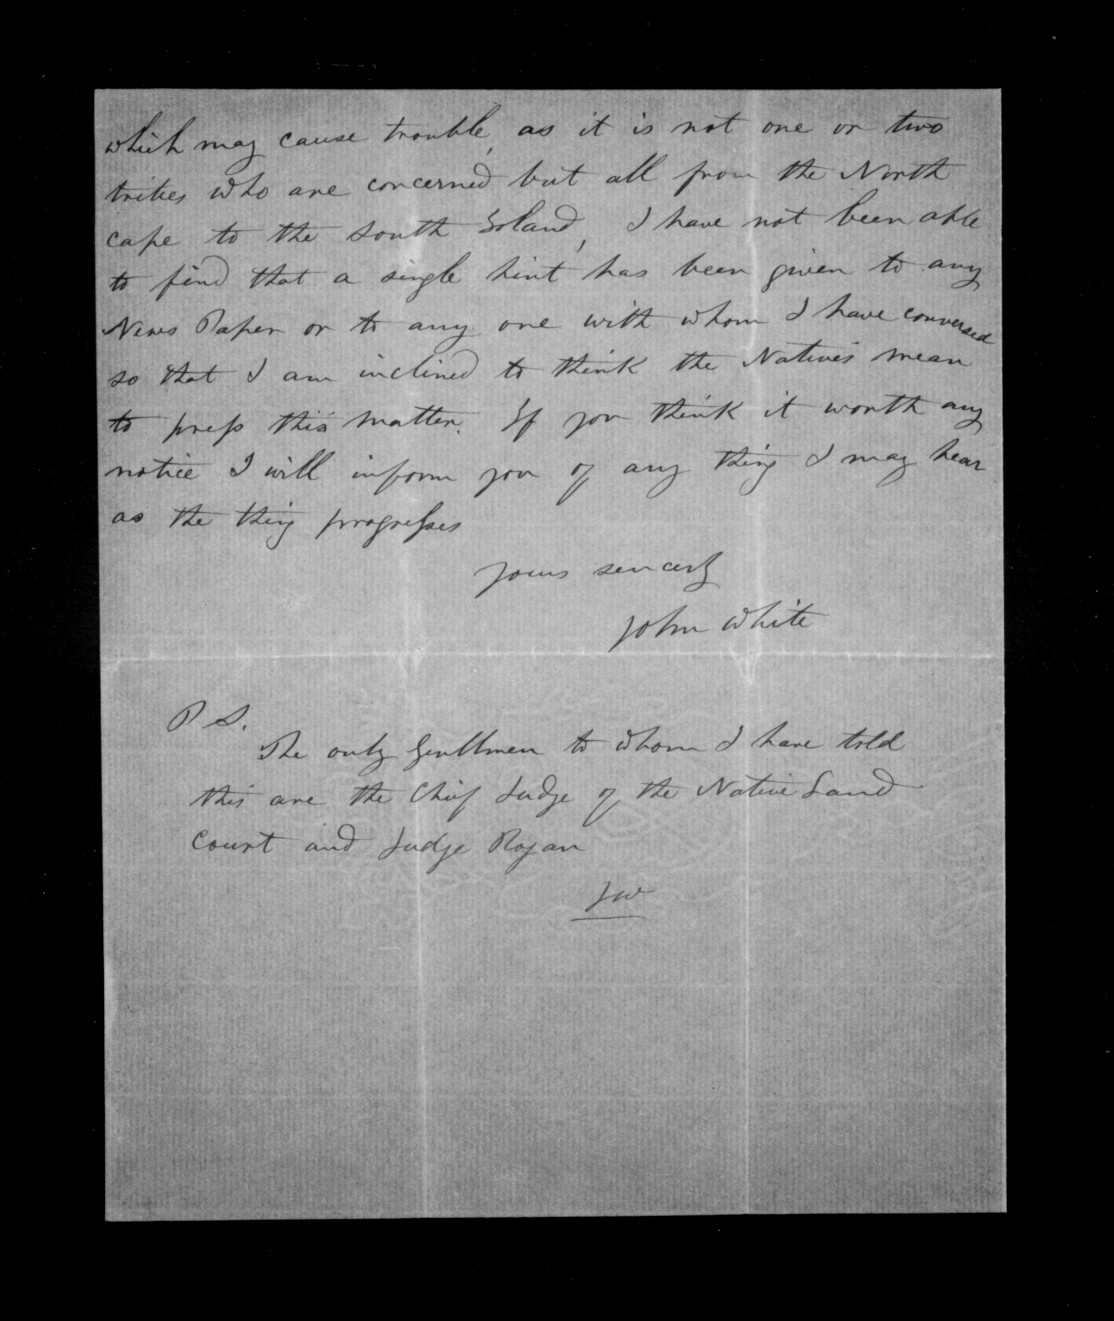 which may cause trouble, as it is not one or two
tribes who are concerned but all from the North
cape to the south Island, I have not been able
to find that a single hint has been given to any
News Paper or to any one with whom I have conversed
so that I am inclined to think the Natives mean
to press this matter. If you think it worth any
notice I will inform you of any thing I may hear
as the thing progresses
yours sincerly
John White
P S.
The only Gentlmen to whom I have told
this are the Chief Judge of the Native Land
Court and Judge Rogan
JW